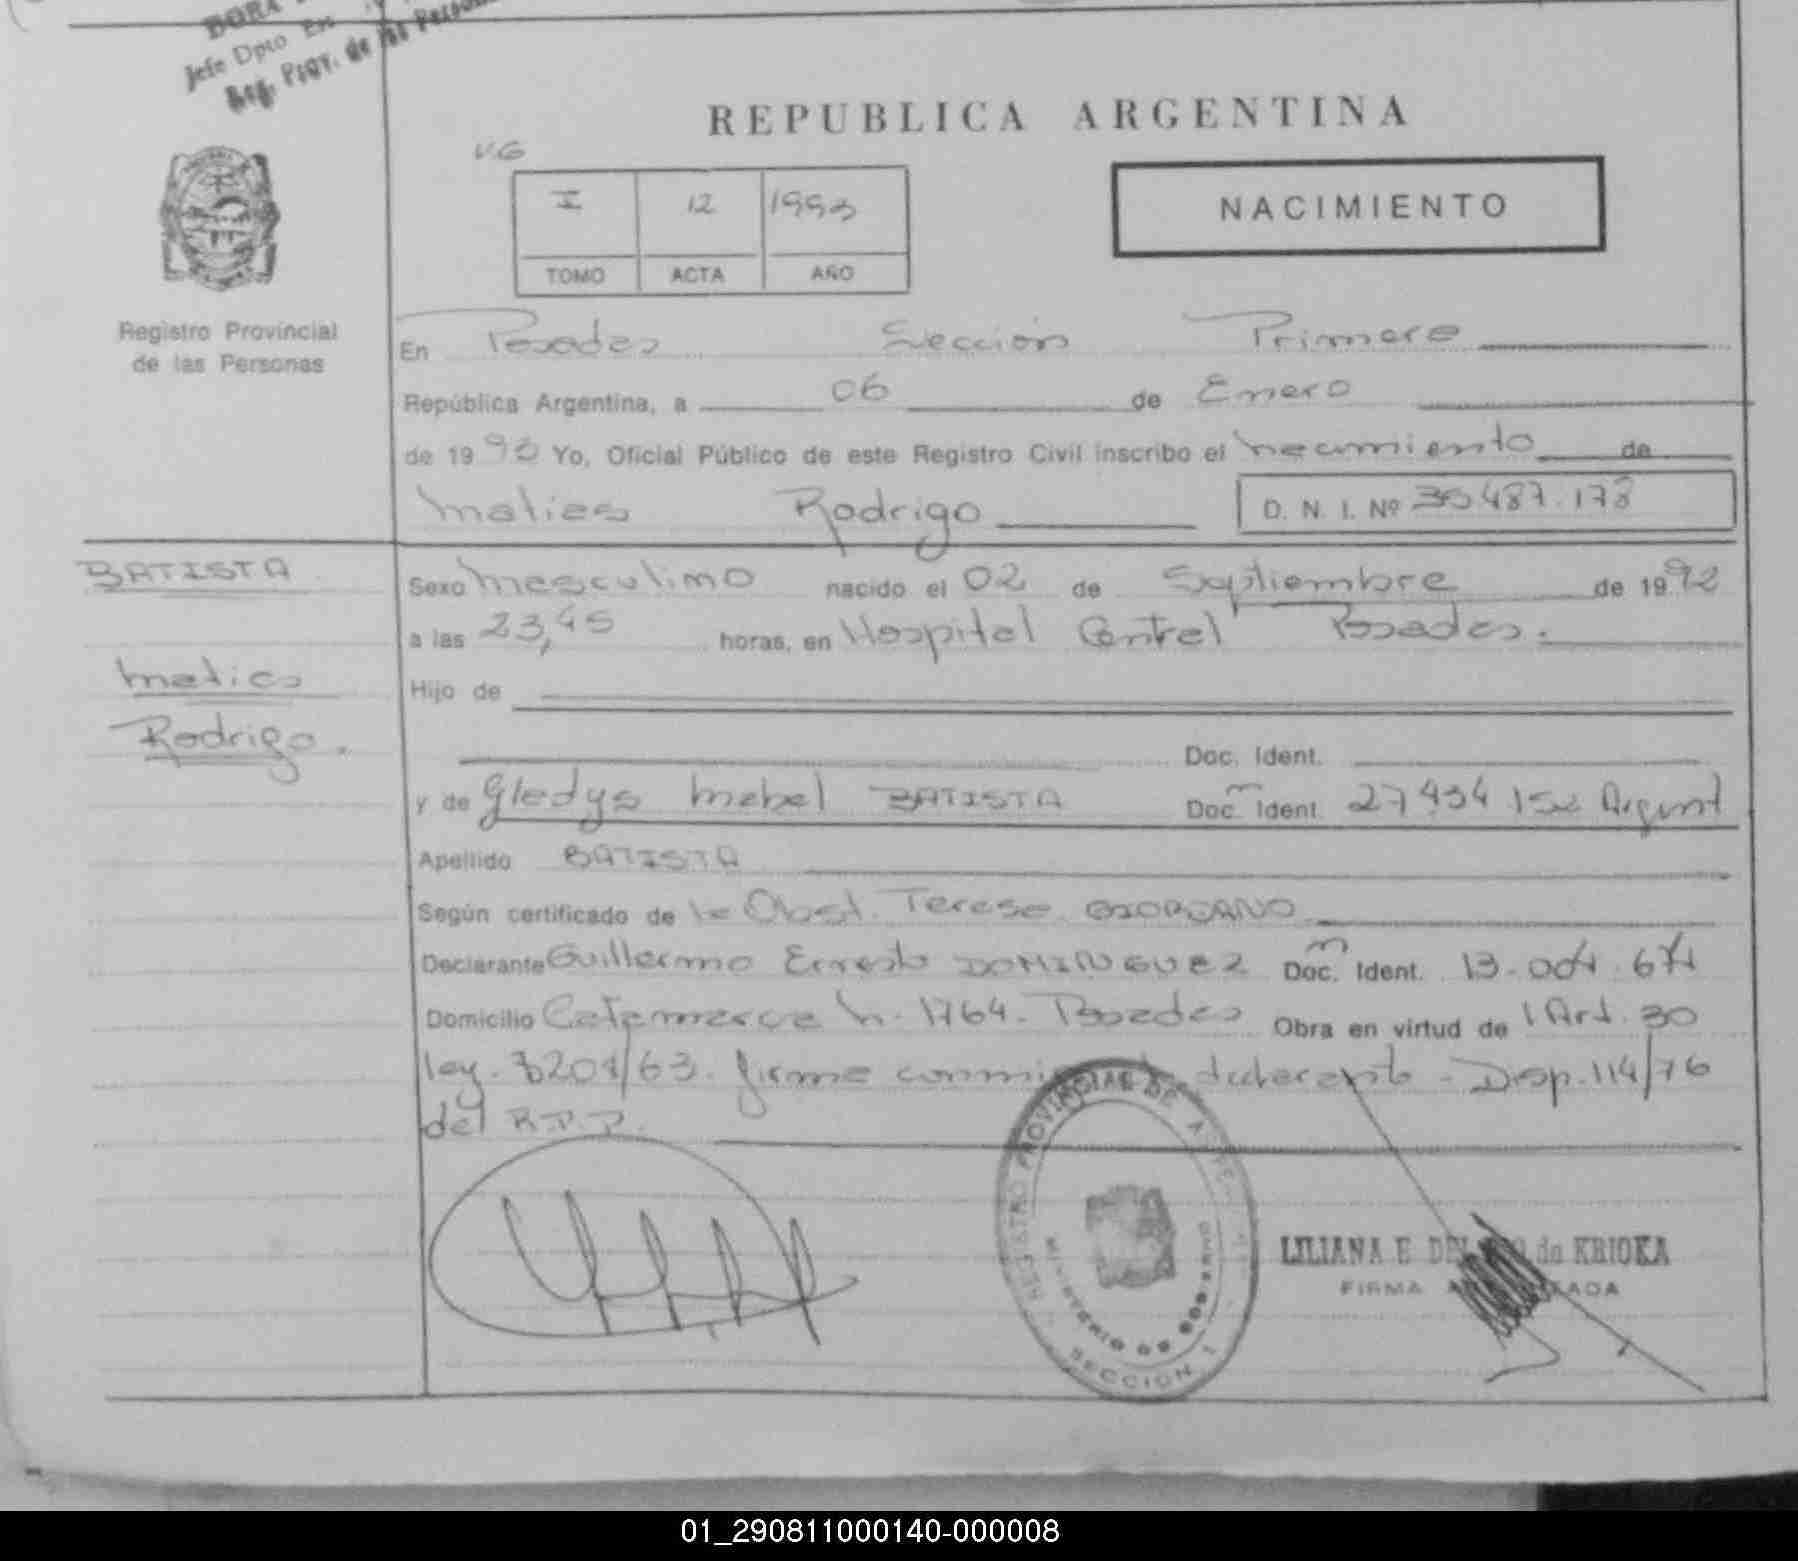 DORA
Jefe Dpto
Reg. Prov. de las Personas
REPUBLICA ARGENTINA
V.G
I 12 1993
TOMO ACTA AÑO
NACIMIENTO
Registro Provincial
de las Personas
En Posadas Sección Primera
República Argentina, a 06 de Enero
de 1993 Yo, Oficial Público de este Registro Civil inscribo el nacimiento de
Matias Rodrigo D. N. I. Nº 36.487.178
BATISTA
Matias
Rodrigo.
Sexo Masculino nacido el 02 de Septiembre de 1992
a las 23,45 horas, en Hospital Central Posadas.
Hijo de
Doc. Ident.
y de Gladys Mabel BATISTA Doc. Ident. 27.434.152 Argent
Apellido BATISTA
Según certificado de la Obst. Teresa GIORDANO
Declarante Guillermo Ernesto DOMINGUEZ Doc. Ident. 13.004.671
Domicilio Catamarca n. 1764. Posadas Obra en virtud de l Art. 30
ley. 8204/63. firma conmigo declarante - Disp. 114/76
del R.P.P.
REGISTRO PROVINCIAL DE
MINISTERIO DE GOBIERNO
SECCION 1
LILIANA E de KRIOKA
FIRMA
01_290811000140-000008